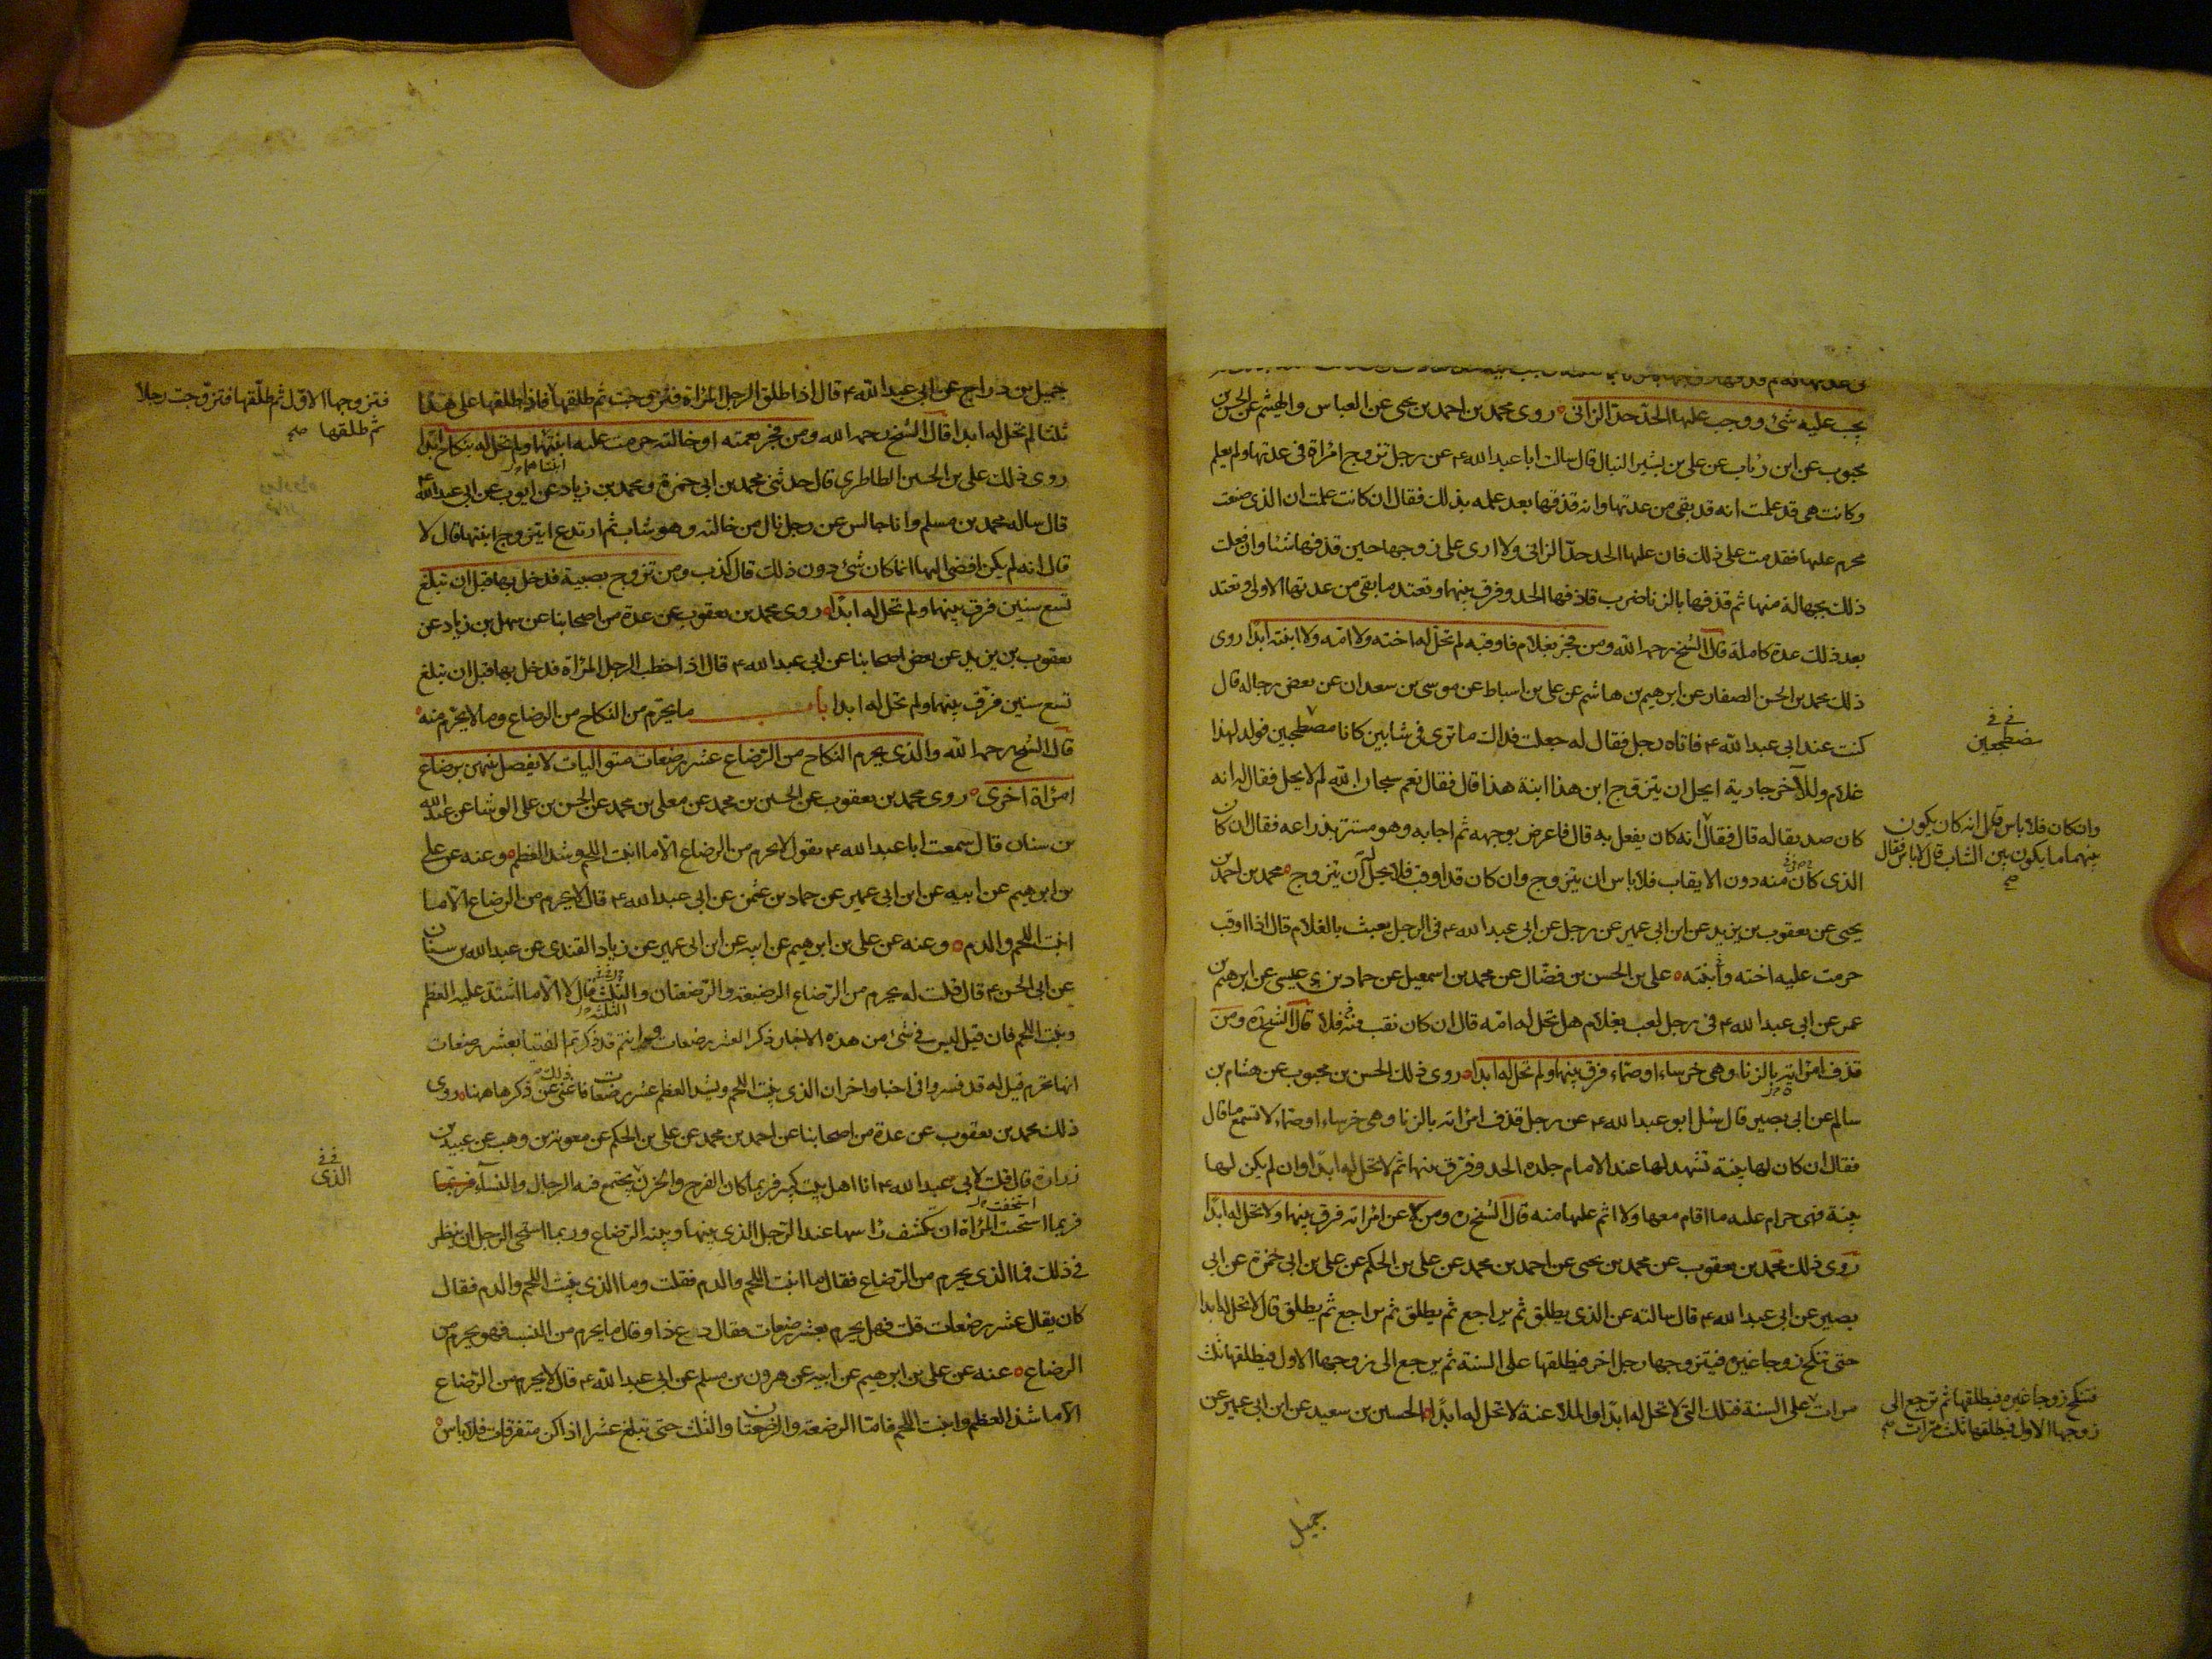 يجب عليه شئ ووجب عليها الحدّ حدّ الزانى روى محمد بن احمد بن يحيى عن العباس والهيثم عن الحسن بن
محبوب عن ابن رئاب عن على بن بشير النبال قال سالت ابا عبد الله ع عن رجل تزوج امراة فى عدتها ولم يعلم
وكانت هى قد علمت انه قد بقى من عدتها وانه قذفها بعد علمه بذلك فقال ان كانت علمت ان الذى صنعت
محرم عليها فقدمت على ذلك فان عليها الحد حدّ الزانى ولا ارى على زوجها حين قذفها شئا وان فعلت
ذلك بجهالة منها ثم قذفها بالزنا ضرب قاذفها الحد وفرق بينهما وتعتد ما بقى من عدتها الاولى وتعتد
بعد ذلك عدة كاملة قال الشيخ رحمه الله ومن فجر بغلام فاوقبه لم تحل له اخته ولا امّه ولا ابنته ابدًا روى
ذلك محمد بن الحسن الصفار عن ابرهيم بن هاشم عن على بن اسباط عن موسى بن سعدان عن بعض رجاله قال
كنت عند ابى عبد الله ع فاتاه رجل فقال له جعلت فداك ما ترى فى شابين كانا مصطحبين فولد لهذا
غلام وللآخر جارية ايحل ان يتزوج ابن هذا ابنة هذا قال فقال نعم سبحان الله لم لا يحل فقال له انه
كان صديقا له قال فقال انه كان يفعل به قال فاعرض بوجهه ثم اجابه وهو مستتر بذراعه فقال ان كان
الذى كان منه دون الايقاب فلا باس ان يتزوج وان كان قد اوقب فلا يحل ان يتزوج محمد بن احمد بن
يحيى عن يعقوب بن يزيد عن ابن ابى عمير عن رجل عن ابى عبد الله ع فى الرجل يعبث بالغلام قال اذا اوقب
حرمت عليه اخته وابنته على بن الحسن بن فضّال عن محمد بن اسمعيل عن حماد بن عيسى عن ابرهيم بن
عمر عن ابى عبد الله ع فى رجل لعب بغلام هل تحل له امّه قال ان كان ثقب فلا قال الشيخ ره ومن
قذف امراته بالزناء وهى خرساء او صمّاء فرق بينهما ولم تحل له ابدا روى ذلك الحسن بن محبوب عن هشام بن
سالم عن ابى بصير قال سئل ابو عبد الله ع عن رجل قذف امراته بالزنا وهى خرساء او صمّاء لا تسمع ما قال
فقال ان كان لها بينة تشهد لها عند الامام جلده الحد وفرّق بينهما ثم لا تحل له ابدًا وان لم يكن لها
بينة فهى حرام عليه ما اقام معها ولا اثم عليها منه قال الشيخ ره ومن لاعن امراته فرق بينهما ولا تحل له ابدًا
روى ذلك محمد بن يعقوب عن محمد بن يحيى عن احمد بن محمد عن على بن الحكم عن على بن ابى حمزة عن ابى
بصير عن ابى عبد الله ع قال سالته عن الذى يطلق ثم يراجع ثم يطلق ثم يراجع ثم يطلق قال لا تحل له ابدا
حتى تنكح زوجا غيره فيتزوجها رجل اخر فيطلقها على السنة ثم يرجع الى زوجها الاول فيطلقها ثلث
مرات على السنة فتلك التى لا تحل له ابدًا والملاعنة لا تحل له ابدًا الحسين بن سعيد عن ابن ابى عمير عن
مضطجعين
وان كان فلا باس قال انه كان يكون
بينهما ما يكون بين الشباب قال لا باس فقال
صح
فتنكح زوجا غيره فيطلقها ثم ترجع الى
زوجها الاول فيطلقها ثلث مرات صح
جميل
جميل بن دراج عن ابى عبد الله ع قال اذا طلق الرجل المراة فتزوجت ثم طلقها فاذا طلقها على هذا
ثلثا لم تحل له ابدا قال الشيخ رحمه الله ومن فجر بعمته او خالته حرمت عليه ابنتهما ولم تحل له بنكاح ابدا
روى ذلك على بن الحسين الطاطرى قال حدثنى محمد بن ابى حمزة ومحمد بن زياد عن ايوب عن ابى عبد الله ع
قال ساله محمد بن مسلم وانا جالس عن رجل نال من خالته وهو شاب ثم ارتدع ايتزوج ابنتها قال لا
قال انه لم يكن افضى اليها انما كان شئ دون ذلك قال كذب ومن تزوج بصبية فدخل بها قبل ان تبلغ
تسع سنين فرق بينهما ولم تحل له ابدًا روى محمد بن يعقوب عن عدة من اصحابنا عن سهل بن زياد عن
يعقوب بن يزيد عن بعض اصحابنا عن ابى عبد الله ع قال اذا خطب الرجل المراة فدخل بها قبل ان تبلغ
تسع سنين فرّق بينهما ولم تحل له ابدا باب ما يحرّم من النكاح من الرضاع وما لا يحرّم منه
قال الشيخ رحمه الله والذى يحرم النكاح من الرّضاع عشر رضعات متواليات لا يفصل بينهن برضاع
امراة اخرى روى محمد بن يعقوب عن الحسين بن محمد عن معلى بن محمد عن الحسن بن على الوشا عن عبد الله
بن سنان قال سمعت ابا عبد الله ع يقول لا يحرم من الرضاع الّا ما انبت اللحم وشد العظم وعنه عن على
بن ابرهيم عن ابيه عن ابن ابى عمير عن حماد بن عثمن عن ابى عبد الله ع قال لا يحرم من الرضاع الّا ما
انبت اللحم والدم وعنه عن على بن ابرهيم عن ابيه عن ابن ابى عمير عن زياد القندى عن عبد الله بن سنان
عن ابى الحسن ع قال قلت له يحرم من الرّضاع الرضعة والرّضعتان والثلث قال لا الّا ما اشتد عليه العظم
ونبت اللحم فان قيل ليس فى شئ من هذه الاخبار ذكر العشر رضعات وانتم قد ذكرتم الفتيا بعشر رضعات
انها تحرم قيل له قد فسروا فى اخبار اخر ان الذى ينبت اللحم ويشد العظم عشر رضعات فاغنى عن ذكرها هنا روى
ذلك محمد بن يعقوب عن عدة من اصحابنا عن احمد بن محمد عن على بن الحكم عن معوية بن وهب عن عبيد بن
زرارة قال قلت لابى عبد الله ع انا اهل بيت كبير فربما كان الفرح والحزن يجتمع فيه الرجال والنساء فربما
فربما استحت المراة ان تكشف راسها عند الرّجل الذى بينها وبينه الرّضاع وربما استحى الرجل ان ينظر
فى ذلك فما الذى يحرم من الرّضاع فقال ما انبت اللحم والدم فقلت وما الذى ينبت اللحم والدم فقال
كان يقال عشر رضعات قلت فهل يحرم بعشر رضعات فقال دع ذا وقال ما يحرم من النسب فهو يحرم من
الرضاع عنه عن على بن ابرهيم عن ابيه عن هرون بن مسلم عن ابى عبد الله ع قال لا يحرم من الرّضاع
الّا ما شد العظم وانبت اللحم فامّا الرضعة والرضعتان والثلث حتى تبلغ عشرا اذا كن متفرقات فلا باس
فتزوجها الاوّل ثم طلّقها فتزوّجت رجلا
ثم طلقها صح
الذى